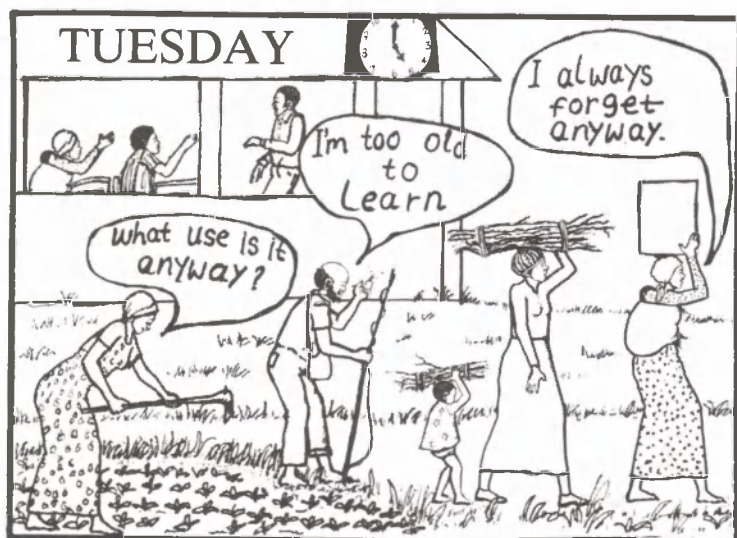 TUESDAY
I always
forget
anyway.
I'm too old
to
Learn
what use is it
anyway?